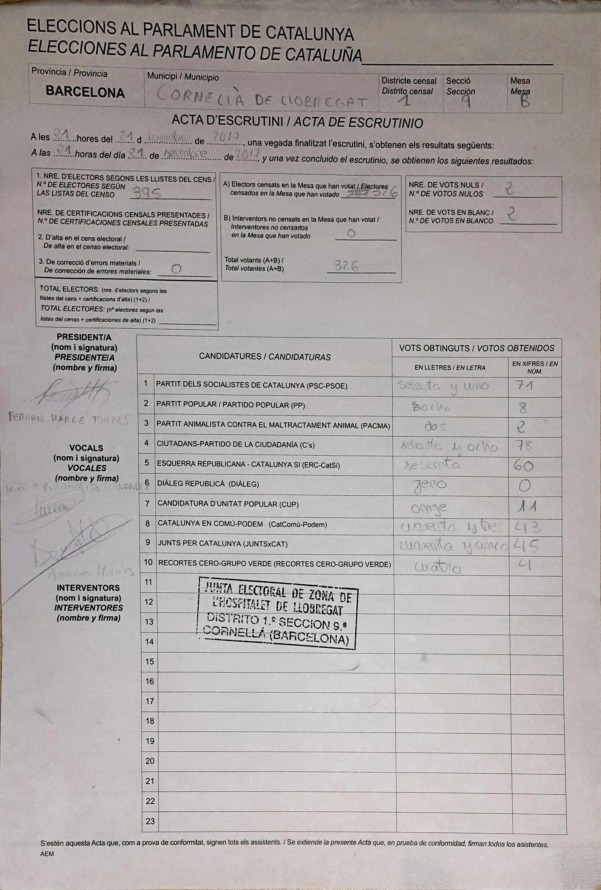 ELECCIONS AL PARLAMENT DE CATALUNYA
ELECCIONES AL PARLAMENTO DE CATALUÑA
Província / Provincia
BARCELONA
Municipi / Municipio
CORNELLÀ DE LLOBREGAT
Districte censal
Distrito censal 1
Secció
Sección 9
Mesa
Mesa B
ACTA D'ESCRUTINI / ACTA DE ESCRUTINIO
A les 21 hores del 21 d de 2017, una vegada finalitzat l'escrutini, s'obtenen els resultats següents:
A las 21 horas del día 21 de de 2017 y una vez concluido el escrutinio, se obtienen los siguientes resultados:
1. NRE. D'ELECTORS SEGONS LES LLISTES DEL CENS /
N.º DE ELECTORES SEGÚN
LAS LISTAS DEL CENSO 395
NRE. DE CERTIFICACIONS CENSALS PRESENTADES /
N.º DE CERTIFICACIONES CENSALES PRESENTADAS
2. D'alta en el cens electoral /
De alta en el censo electoral:
3. De correcció d'errors materials /
De corrección de errores materiales: 0
TOTAL ELECTORS: (nre. d'electors segons les
llistes del cens + certificacions d'alta) (1+2) /
TOTAL ELECTORES: (nº electores según las
listas del censo + certificaciones de alta) (1+2)
A) Electors censats en la Mesa que han votat / Electores
censados en la Mesa que han votado 326
B) Interventors no censats en la Mesa que han votat /
Interventores no censados
en la Mesa que han votado 0
Total votants (A+B) /
Total votantes (A+B) 326
NRE. DE VOTS NULS /
N.º DE VOTOS NULOS 2
NRE. DE VOTS EN BLANC /
N.º DE VOTOS EN BLANCO 2
PRESIDENT/A
(nom i signatura)
PRESIDENTE/A
(nombre y firma)
VOCALS
(nom i signatura)
VOCALES
(nombre y firma)
INTERVENTORS
(nom i signatura)
INTERVENTORES
(nombre y firma)
CANDIDATURES / CANDIDATURAS
VOTS OBTINGUTS / VOTOS OBTENIDOS
EN LLETRES / EN LETRA
EN XIFRES / EN NÚM.
1 PARTIT DELS SOCIALISTES DE CATALUNYA (PSC-PSOE) y uno 71
2 PARTIT POPULAR / PARTIDO POPULAR (PP) ocho 8
3 PARTIT ANIMALISTA CONTRA EL MALTRACTAMENT ANIMAL (PACMA) dos 2
4 CIUTADANS-PARTIDO DE LA CIUDADANÍA (C's) setenta y ocho 78
5 ESQUERRA REPUBLICANA - CATALUNYA SI (ERC-CatSí) sesenta 60
6 DIÀLEG REPUBLICÀ (DIÀLEG) zero 0
7 CANDIDATURA D'UNITAT POPULAR (CUP) onze 11
8 CATALUNYA EN COMÚ-PODEM (CatComú-Podem) 43
9 JUNTS PER CATALUNYA (JUNTSxCAT) 45
10 RECORTES CERO-GRUPO VERDE (RECORTES CERO-GRUPO VERDE) 4
11
12
13
14
15
16
17
18
19
20
21
22
23
JUNTA ELECTORAL DE ZONA DE
L'HOSPITALET DE LLOBREGAT
DISTRITO 1.º SECCION 9.ª
CORNELLÁ (BARCELONA)
S'estén aquesta Acta que, com a prova de conformitat, signen tots els assistents. / Se extiende la presente Acta que, en prueba de conformidad, firman todos los asistentes.
AEM